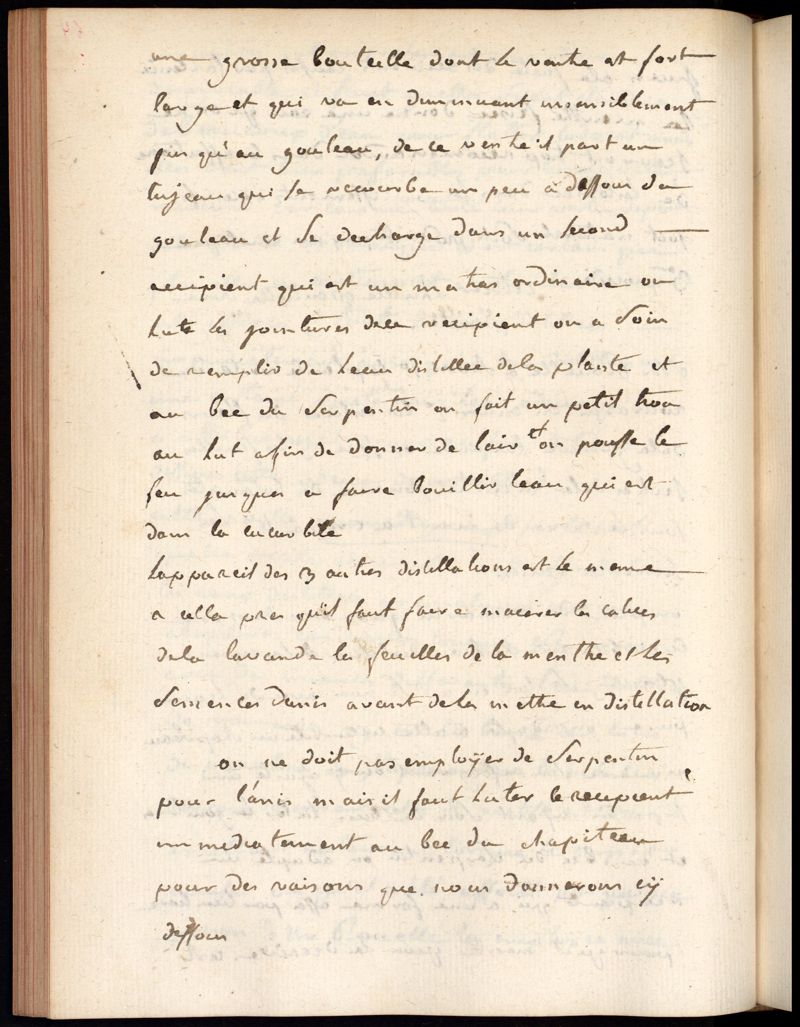 une grosse bouteille dont le ventre est fort
large et qui va en diminuant insensiblement
jus qu'au gouleau, de ce ventre il part un
tujeau qui se recourbe un peu a dessous du
gouleau et se decharge dans un second
recipient qui est un matras ordinaire on
lute les jointures de ce recipient on a soin
de remplir de leau distillee dela plante et
au bec du serpentin on fait un petit trou
au lut afin de donner de lair et on pousse le
feu jusques a faire bouillir leau qui est
dans la cucurbite
Lappareil des 3 autres distillations est le meme
a cella pres qu'il faut faire macerer les calices
dela lavande la feuilles de la menthe et les
semences danis avant dela mettre en distillation
on ne doit pas employer de serpentin
pour l'anis mais il faut luter le recipient
immediatement au bec du chapiteau
pour des raisons que nous donnerons cÿ
dessous